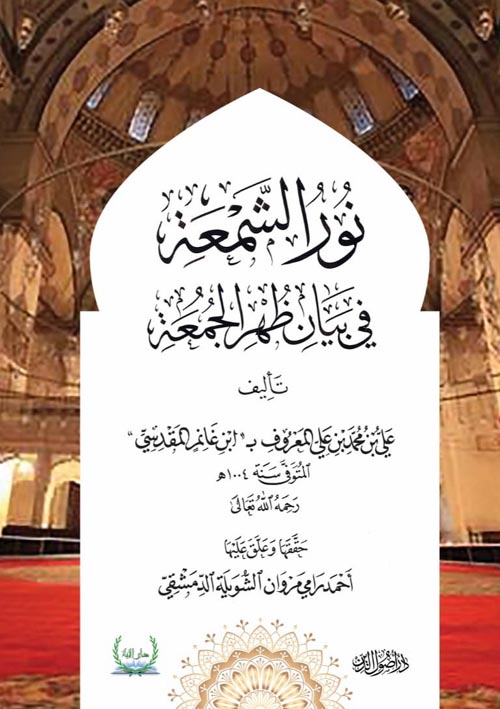 نُورُ الشَّمْعَةِ
فِي بَيَانِ ظُهْرِ الجُمُعَةِ
تَأليف
عَلِيّ بْنُ مُحَمَّد بْنِ عَلِيّ المَعْرُوفِ بـ "ابْنِ غَانِمٍ المَقْدِسِيّ"
المُتَوَفَّى سَنَة ١٠٠٤ هـ
رَحِمَهُ اللهُ تَعَالَى
حَقَّقَهَا وَعَلَّقَ عَلَيْهَا
أَحْمَد رَامِي مَرْوَان الشُّوَيْلَة الدِّمَشْقِيّ
دار أصول الدين